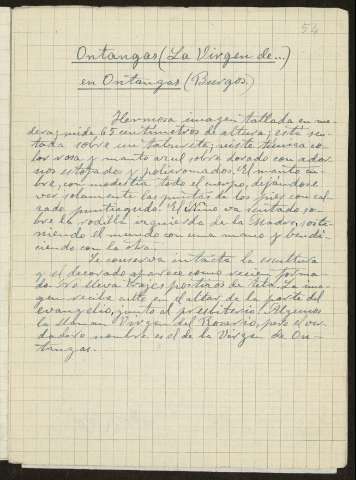 54
Ontangas (La Virgen de...)
en Ontangas (Burgos)
Hermosa imagen tallada en ma-
dera; mide 65 centímetros de altura; está sen-
tada sobre un taburete; viste túnica co-
lor rosa y manto azul sobre dorado con ador-
nos estofados y polícromados. El manto cu-
bre, con modestia todo el cuerpo, dejándose
ver solamente las puntas de los pies con cal-
zado puntiagudo. El Niño va sentado so-
bre la rodilla izquierda de la Madre, soste-
niendo el mundo con una mano y bendi-
ciendo con la otra.
Se conserva intacta la escultura
y el decorado aparece como recien forma-
do. No lleva trajes postizos de tela. La ima-
gen recibe culto en el altar de la parte del
evangelio, junto al presbiterio. Algunos
la llaman Virgen del Rosario, pero el ver-
dadero nombre es el de la Virgen de On-
tangas.